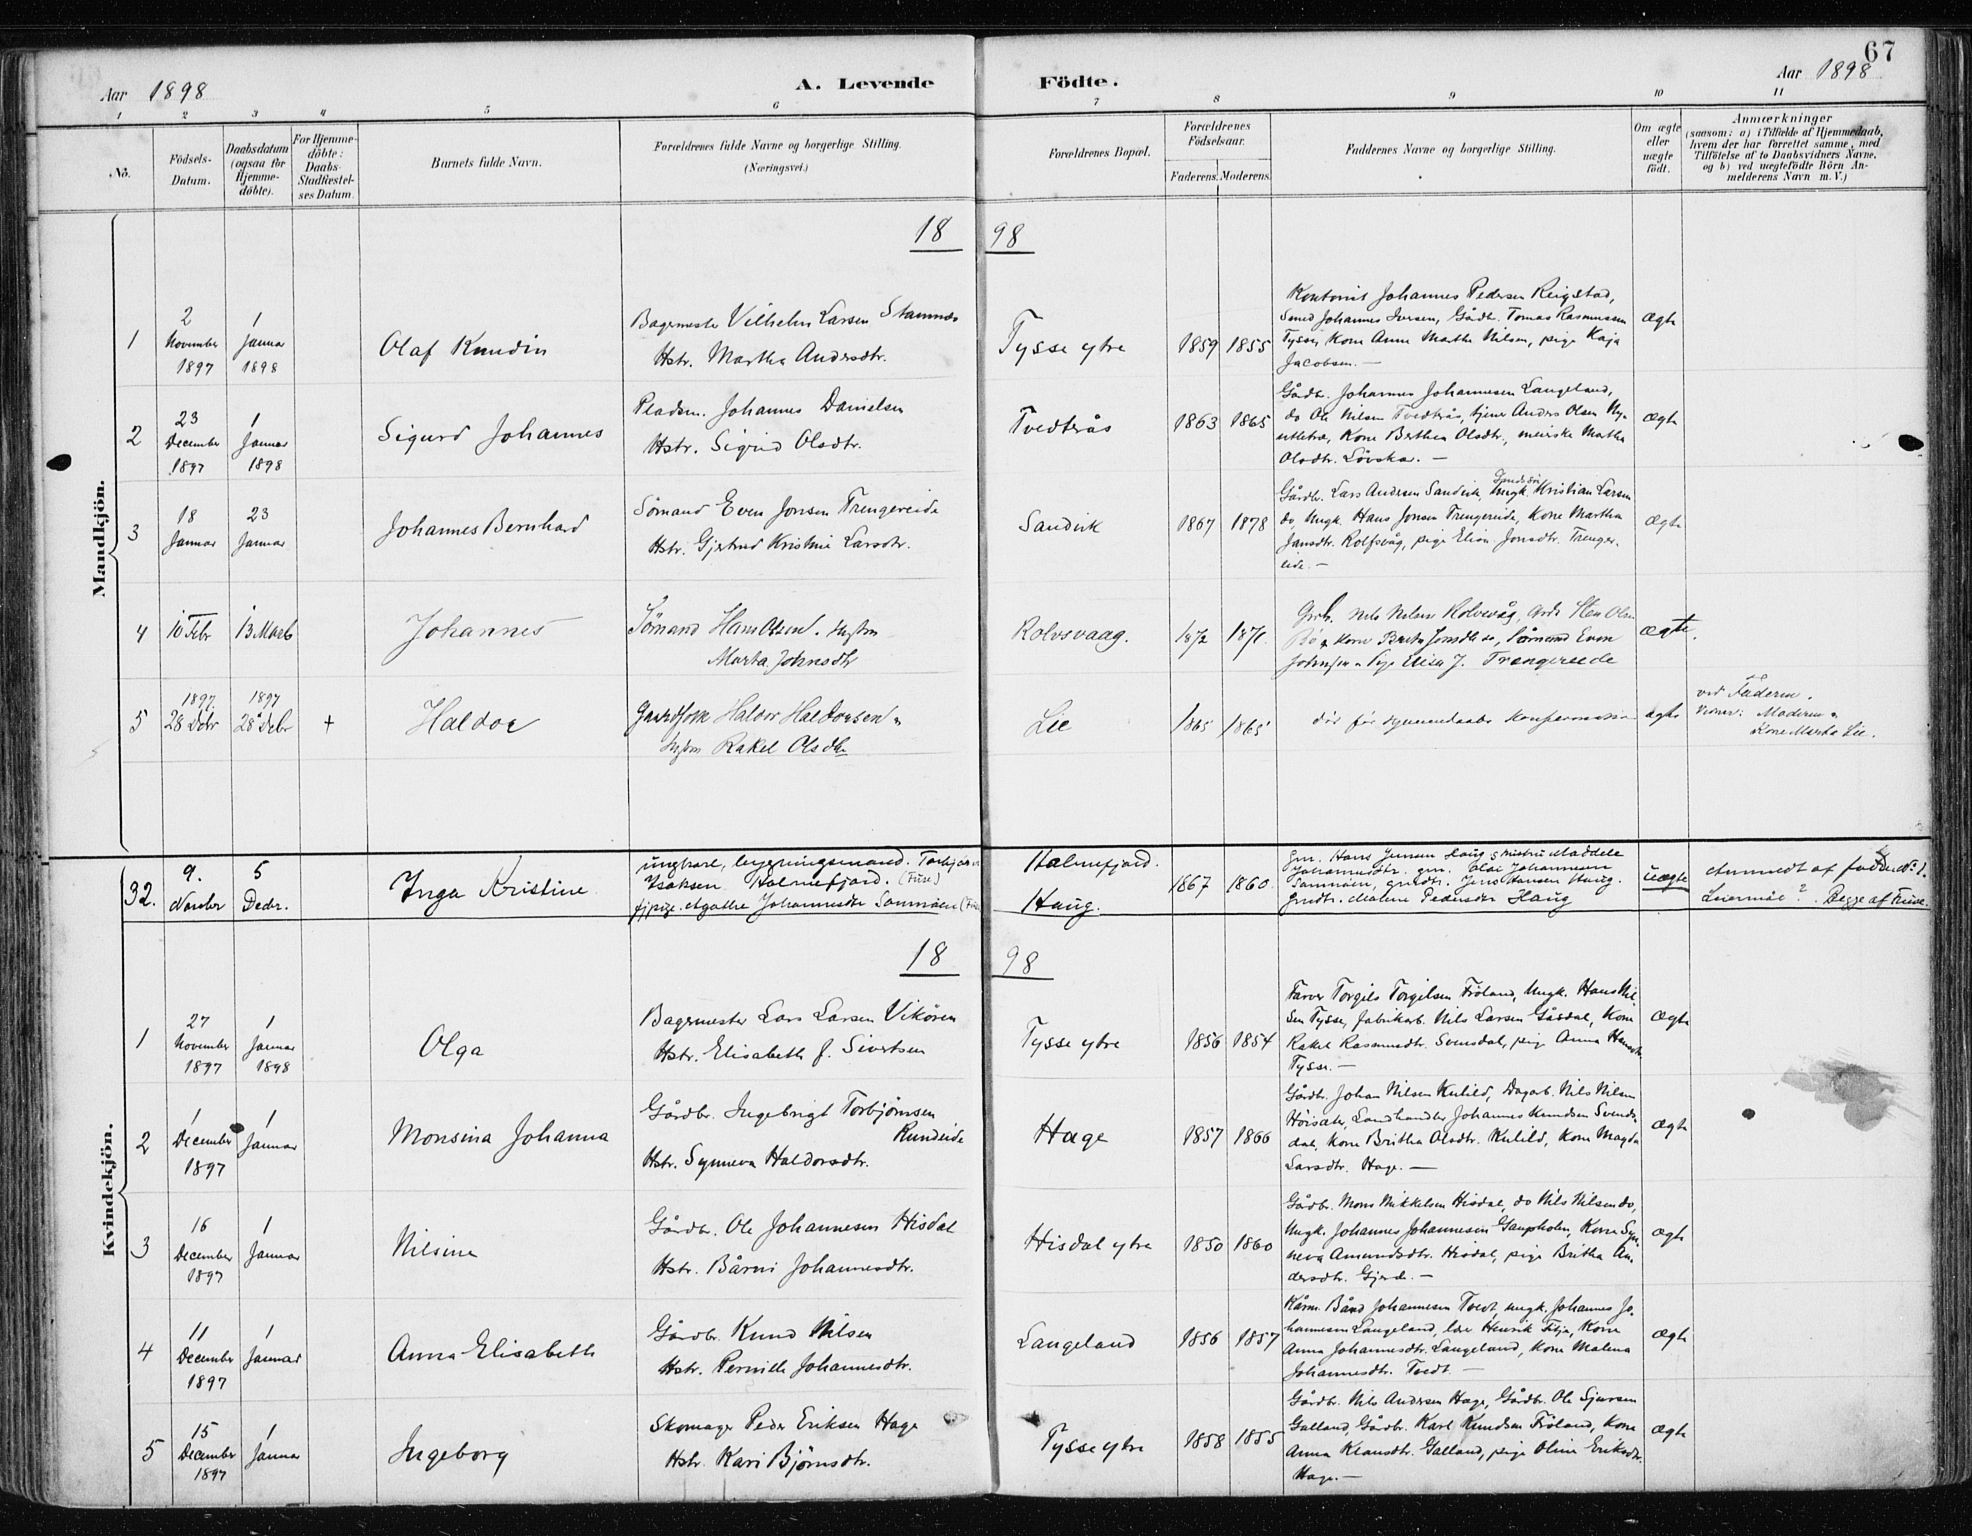 67
Aar 1898
A. Levende Födte.
Aar 1898
1 2 3 4 5 6 7 8 9 10 11
No.
Födsels-Datum.
Daabsdatum (ogsaa for Hjemme-döbte).
For Hjemme-döbte: Daabs-Stadfæstel-ses Datum.
Barnets fulde Navn.
Forældrenes fulde Navne og borgerlige Stilling.
(Næringsvei.)
Forældrenes Bopæl.
Forældrenes Födselsaar.
Faderens. Moderens.
Faddernes Navne og borgerlige Stilling.
Om ægte eller uægte födt.
Anmærkninger
(saasom: a) i Tilfælde af Hjemmedaab, hvem der har forrettet samme, med Tilföielse af to Daabsvidners Navne, og b) ved uægtefödte Börn An-melderens Navn m. V.)
Mandkjön.
18 98
1
2 November 1897
1 Januar 1898
Olaf Knudin
Bagermester Vilhelm Larsen Stamnæs
Hstr. Martha Andersdtr.
Tysse ytre
1859 1855
Kontorist Johannes Pedersen Reigstad,
Smed Johannes Iversen, Gårdbr. Tomas Rasmussen
Tysse, Kone Anne Marthe Nilsen, pige Kaja
Jacobsen. —
Ægte
2
23 December 1897
1 Januar 1898
Sigurd Johannes
Pladsm. Johannes Danielsen
Hstr. Sigrid Olsdtr.
Tvedterås
1863 1865
Gårdbr. Johannes Johannesen Langeland,
do Ole Nilsen Tvedterås, tjener Anders Olsen
Kone Berthea Olsdtr., meierske Martha
Olsdtr. —
Ægte
3
18 Januar
23 Januar
Johannes Bernhard
Sömand Even Jonsen Trengereide
Hstr. Gjertrud Kristine Larsdtr.
Sandvik
1867 1878
Gårdbr. Lars Andersen Sandvik, Ungk. Kristian Larsen
do, Ungk. Hans Jonsen Trengereide, Kone Martha
Jansdtr. Rolfsvåg, pige Elisa Jonsdtr. Trenger-
eide. —
Ægte
4
10 Febr
13 Marts
Johannes
Sømand Hans Olsen. Hustru
Marta Johnsdtr
Rolvsvaag.
1872 1871.
Grb. Nils Nilsen Rolvsvåg, Grdb Sten Olsen
Bø, Kone Brita Jonsdtr do, Sømand Even
Johnsen, Pige Elisa J. Trengereide
ægte.
5
1897 28 Debr
1897 28 Debr
+
Haldor
Gaardfolk Haldor Haldorsen
Hustru Rakel Olsdtr
Lie
1865 1865
død før daabs konfirmasion
ægte
ved Faderen.
Vidner: Moderen
Kone Marta Lie.
32.
9. Novbr
5 Decbr.
Inga Kristine
ungkarl, bygningsmand. Torbjørn
Isaksen Holmefjord. (Fuse)
pige Agathe Johannesdtr Samnöen (Fuse)
Holmefjord.
Haug.
1867 1860.
gm. Hans Jensen Haug hustru Maddele
Johannesdtr. gm. Olai Johannesen
Samnöen, grdsdtr. Jens Hansen Haug.
grdsdtr. Malene Pedersdtr Haug
uægte
Anmeldt af faderen No 1.
Leiermål? Begge af Fuse.
Kvindekjön.
18 98
1
27 November 1897
1 Januar 1898
Olga
Bagermester Lars Larsen Vikören
Hstr. Elisabeth f. Sivertsen
Tysse ytre
1856 1854
Farver Torgils Torgilsen Fröland, Ungk. Hans Nil-
sen Tysse, fabrikarb. Nils Larsen Gåsdal, Kone
Rakel Rasmusdtr. Svensdal, pige Anna Hansdtr.
Tysse. —
Ægte
2
1 December 1897
1 Januar
Monsina Johanna
Gårdbr. Ingebrigt Torbjörnsen
Rundeide
Hstr. Synneva Haldorsdtr.
Hage
1857 1866
Gårdbr. Johan Nilsen Kulild, Dagarb. Nils Nilsen
Höisæter, Landhandler Johannes Knudsen Svends-
dal, Kone Britha Olsdtr. Kulild, Kone Magda
Larsdtr. Hage. —
Ægte
3
16 December 1897
1 Januar
Nilsine
Gårdbr. Ole Johannesen Hisdal
Hstr. Bårni Johannesdtr.
Hisdal ytre
1850 1860
Gårdbr. Mons Mikkelsen Hisdal, do Nils Nilsen do,
Ungk. Johannes Johannesen Gaupholm, Kone Syn-
neva Amundsdtr. Hisdal, pige Britha An-
dersdtr. Gjerde. —
Ægte
4
11 December 1897
1 Januar
Anna Elisabeth
Gårdbr. Knud Nilsen
Hstr. Pernille Johannesdtr.
Langeland
1856 1857
Kårm. Bård Johannesen Tvedt, ungk. Johannes Jo-
hannesen Langeland, lær. Henrik Tilja, Kone
Anna Johannesdtr. Langeland, Kone Malena
Johannesdtr. Tvedt —
Ægte
5
15 December 1897
1 Januar
Ingeborg
Skomager Peder Eriksen Hage
Hstr. Kari Björnsdtr.
Tysse ytre
1858 1855
Gårdbr. Nils Andersen Hage, Gårdbr. Ole Sjursen
Galland, Gårdbr. Karl Knudsen Fröland, Kone
Anna Klausdtr. Galland, pige Oline Eriksdtr.
Hage. —
Ægte